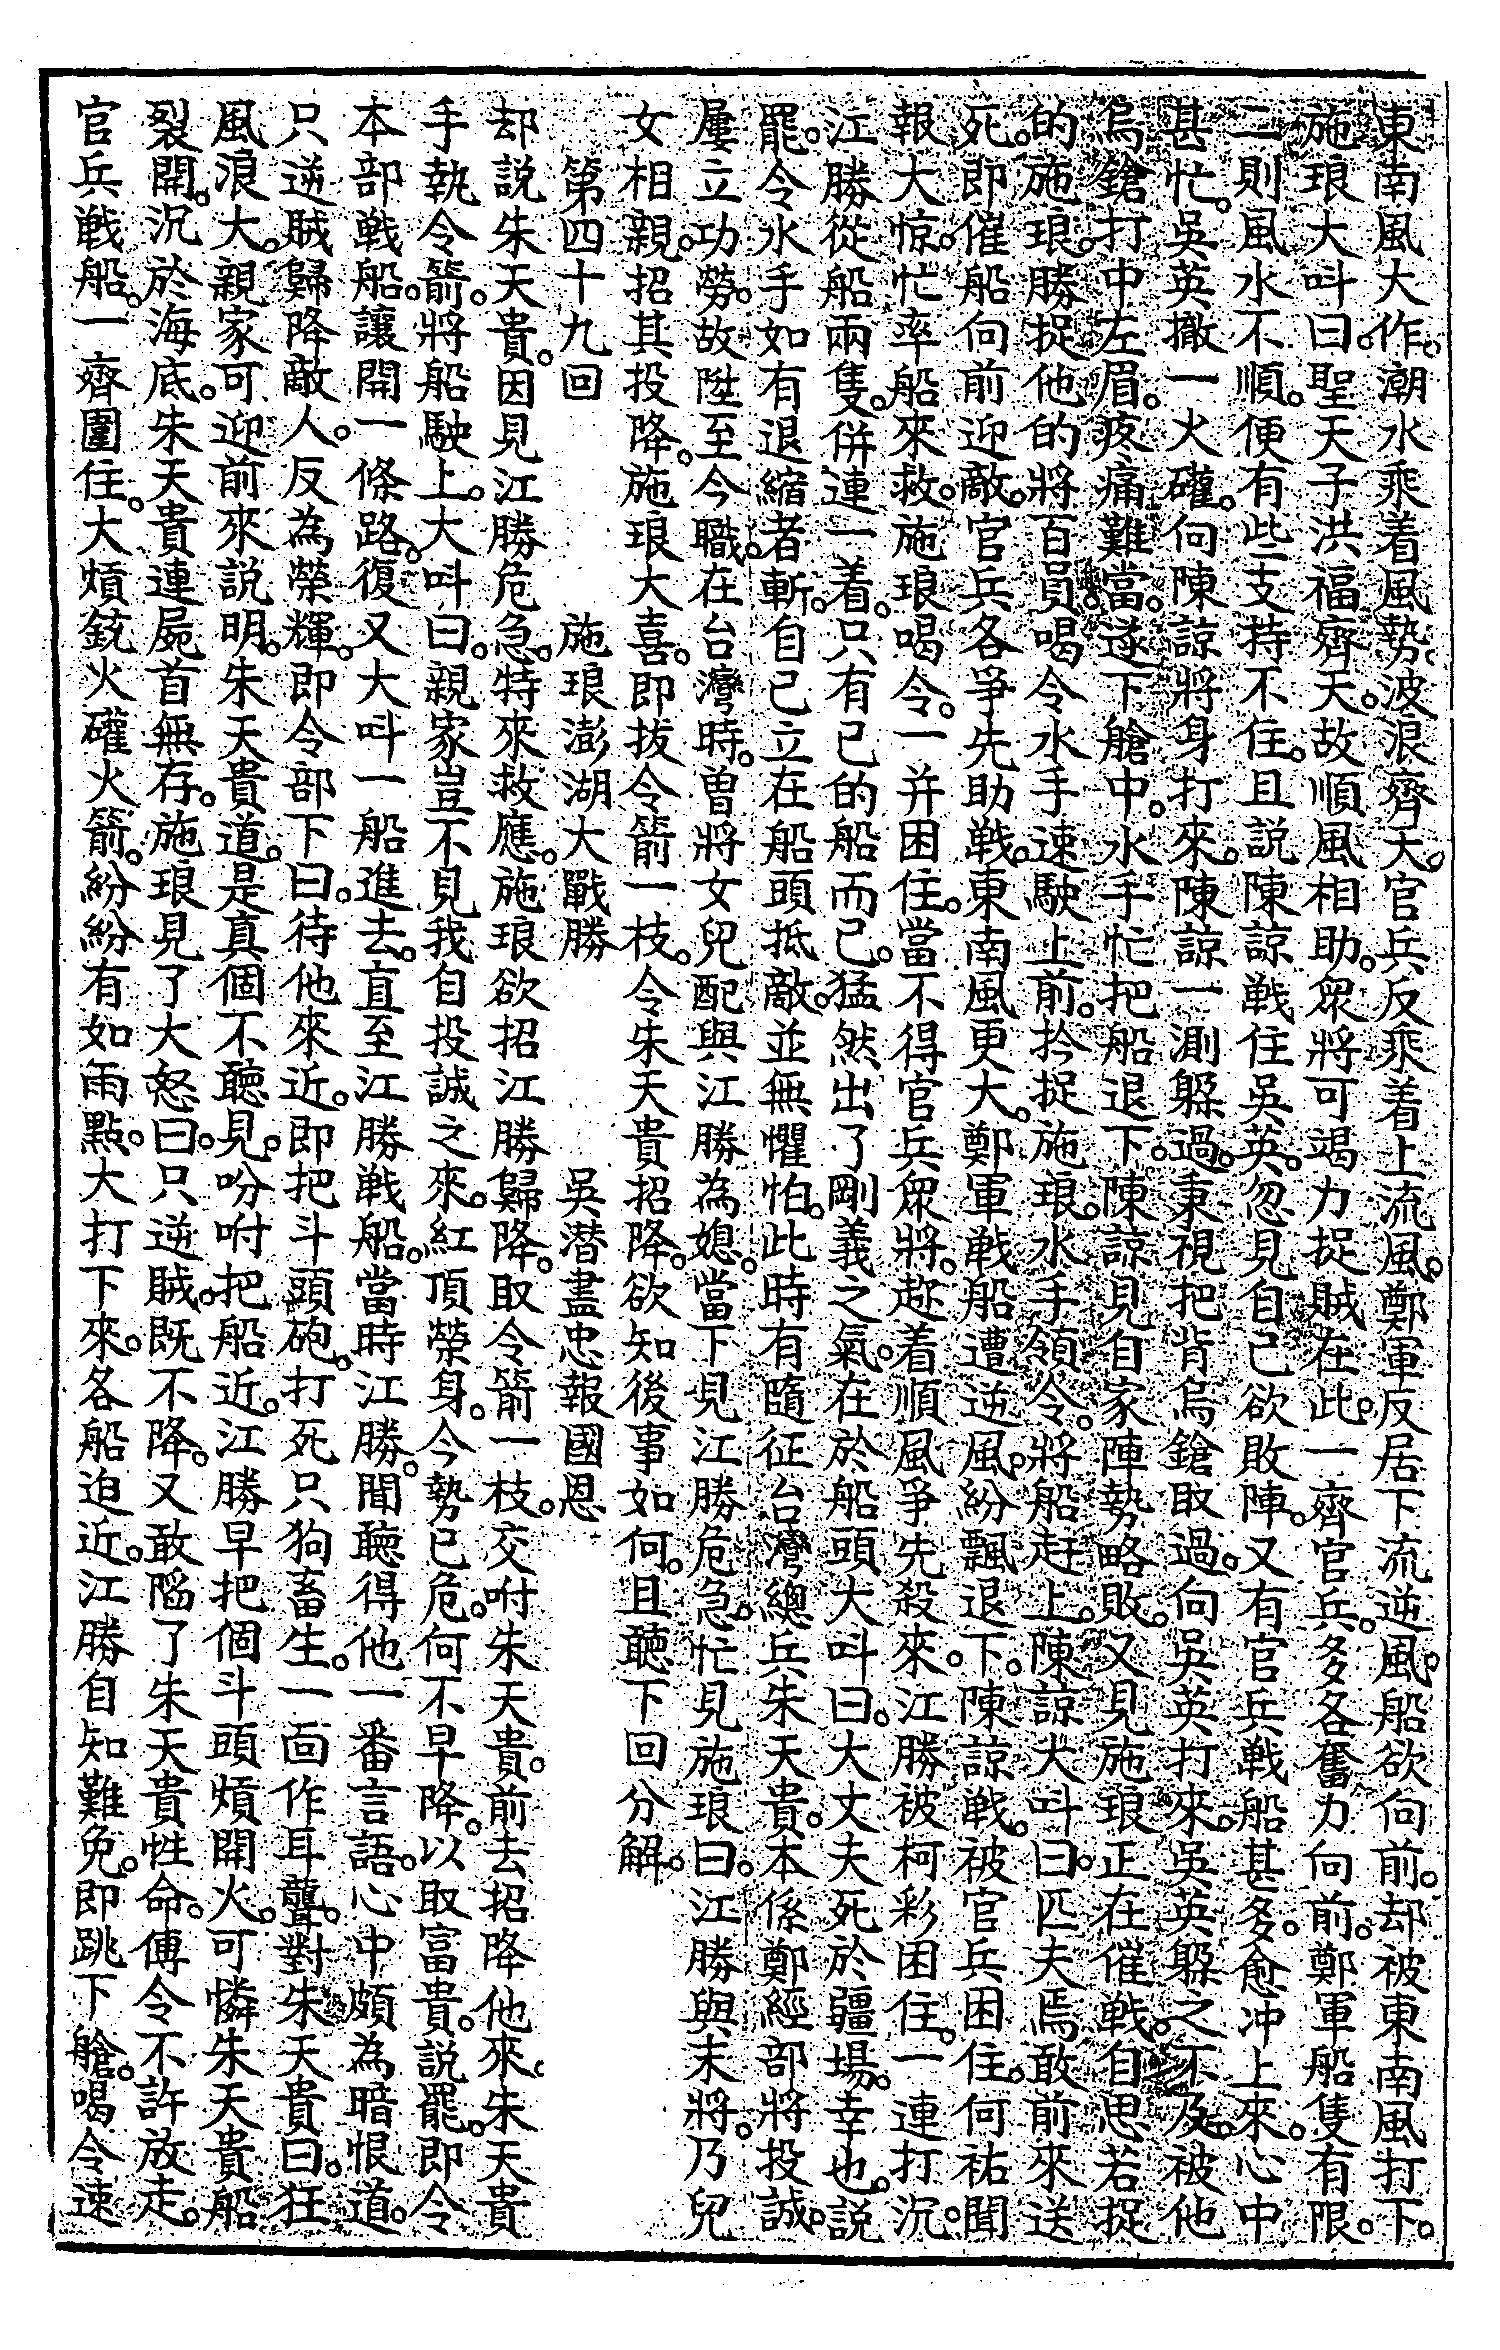 東南風大作。潮水乘着風勢。波浪齊天。官兵反乘着上流風。鄭軍反居下流逆風。船欲向前。却被東南風打下。
施琅大叫曰。聖天子洪福齊天。故順風相助。眾將可竭力捉賊在此。一齊官兵。多各奮力向前。鄭軍船隻有限。
二則風水不順。便有些支持不住。且説陳諒戦住吳英。忽見自己欲敗陣。又有官兵戦船甚多。愈冲上來。心中
甚忙。吳英撒一火礶。向陳諒將身打來。陳諒一測躱過。秉視把背烏鎗取過。向吳英打來。吳英躱之不及。被他
烏鎗打中左眉。疼痛難當。遂下艙中。水手忙把船退下。陳諒見自家陣勢略敗。又見施琅正在催戦。自思若捉
的施琅。勝捉他的將百員。喝令水手速駛上前。扲捉施琅。水手領令。將船赶上。陳諒大叫曰。匹夫焉敢前來送
死。即催船向前迎敵。官兵各爭先助戦。東南風更大。鄭軍戦船遭逆風。紛飄退下。陳諒戦。被官兵困住。何祐聞
報大惊。忙率船來救。施琅喝令。一并困住。當不得官兵眾將。趂着順風爭先殺來。江勝被柯彩困住。一連打沉。
江勝從船兩隻。併連一着。只有已的船而已。猛然出了剛義之氣。在於船頭大叫曰。大丈夫死於疆場。幸也。説
罷。令水手如有退縮者斬。自己立在船頭抵敵。並無懼怕。此時有隨征台灣總兵朱天貴。本係鄭經部將投誠。
屢立功勞。故陞至今職。在台灣時。曽將女兒配與江勝為媳。當下見江勝危急。忙見施琅曰。江勝與末將。乃兒
女相親。招其投降。施琅大喜。即拔令箭一枝。令朱天貴招降。欲知後事如何。且聽下回分解。
第四十九回　施琅澎湖大戰勝　吳潜盡忠報國恩
却説朱天貴。因見江勝危急。特來救應。施琅欲招江勝歸降。取令箭一枝。交咐朱天貴。前去招降他來。朱天貴
手執令箭。將船駛上。大叫曰。親家豈不見我自投誠之來。紅頂榮身。今勢已危。何不早降。以取富貴。説罷。即令
本部戦船。讓開一條路。復又大叫一船進去。直至江勝戦船。當時江勝。聞聽得他一番言語。心中頗為暗恨道。
只逆賊歸降敵人。反為榮輝。即令部下曰。待他來近。即把斗頭砲。打死只狗畜生。一面作耳聾。對朱天貴曰。狂
風浪大。親家可迎前來説明。朱天貴道。是真個不聽見。吩咐把船近。江勝早把個斗頭熕開火。可憐朱天貴船
裂開。沉於海底。朱天貴連屍首無存。施琅見了大怒曰。只逆賊。既不降。又敢陷了朱天貴性命。傳令不許放走。
官兵戦船。一齊圍住。大熕銃火礶火箭。紛紛有如雨點。大打下來。各船迫近。江勝自知難免。即跳下艙。喝令速